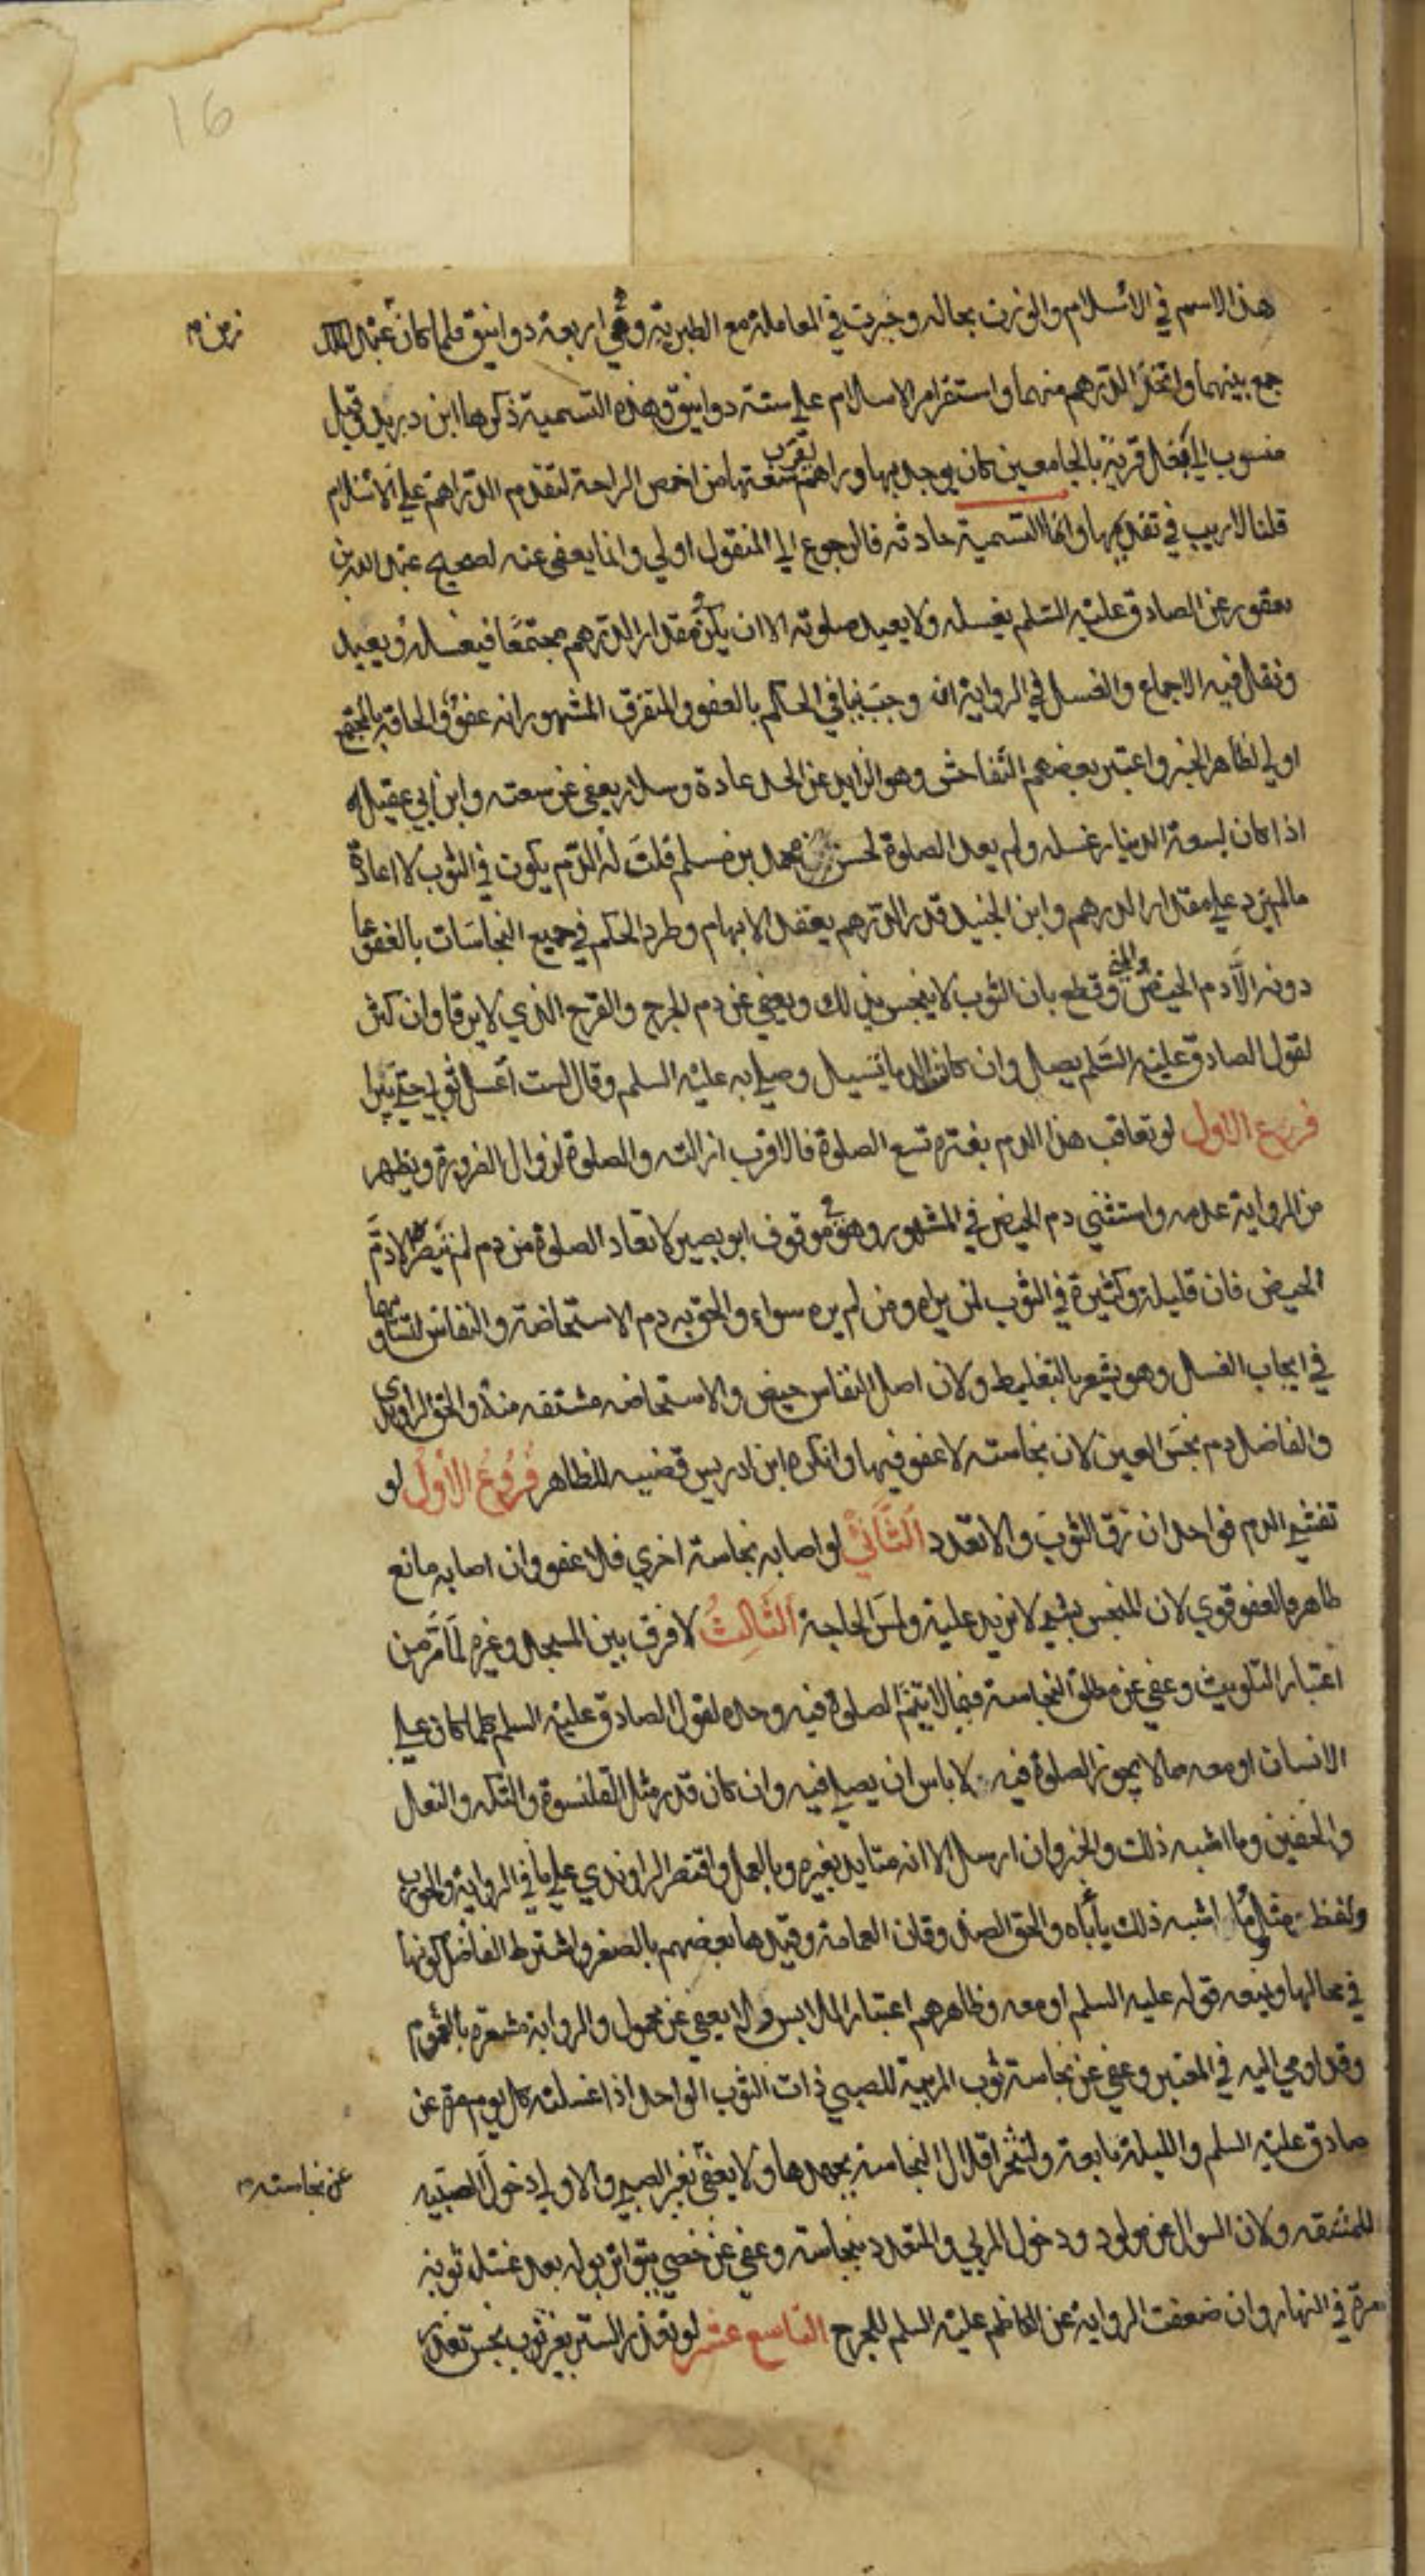 16
هذا الاسم في الاسلام والوزن بحاله وجرت في المعاملة مع الطبرية وهي اربعة دوانيق فلما كان عبد الملك
زمن م
جمع بينهما واتخذ الدرهم منهما واستقر امر الاسلام على ستة دوانيق وهذه التسمية ذكرها ابن دريد وقيل
منسوب الى بغل قرية بالجامعين كان يوجد بها دراهم تقرب سعتها من اخمص الراحة لتقدم الدراهم على الاسلام
قلنا لا ريب في تقدمها وانما التسمية حادثه فالرجوع الى المنقول اولي وانما يعفى عنه لصحيح عبد الله بن
يعفور عن الصادق عليه السلم يغسله ولا يعيد صلوته الا ان يكون مقدار الدرهم مجتمعا فيغسله ويعيد
ونقل فيه الاجماع والغسل في الرواية ان وجب ينافي الحكم بالعفو والمتفرق المشهور انه عفو والحاقه بالمجتمع
اولي لظاهر الخبر واعتبر بعضهم التفاحش وهو الزايد عن الحد عادة وسلار يعفى عن سعته وابن ابي عقيل
اذا كان لسعة الدينار غسله ولم يعد الصلوة لحسن محمد بن مسلم قلت له الدم يكون في الثوب لا اعادة
مالم يزد على مقدار الدرهم وابن الجنيد قدر الدرهم بعقد الابهام وطرد الحكم في جميع النجاسات بالعفو عما
دونه الا دم الحيض والمني وقطع بان الثوب لا ينجس بذلك ويعفي عن دم الجرح والقرح الذي لا يرقا وان كثر
لقول الصادق عليه السلم يصلي وان كانت الدما تسيل وصلى به عليه السلم وقال لست اغسل ثوبي حتي تبرا
فرع الاول لو تعاقب هذا الدم بفترة تسع الصلوة فالاقرب ازالته والصلوة لزوال الضرورة ويظهر
من الرواية عدمه واستثني دم الحيض في المشهور وهو في موقوف ابو بصير لا تعاد الصلوة من دم لم تبصره الا دم
الحيض فان قليله وكثيره في الثوب لمن يراه ومن لم يره سواء والحق به دم الاستحاضة والنفاس لتساويهما
في ايجاب الغسل وهو يشعر بالتغليظ ولان اصل النفاس حيض والاستحاضه مشتقه منه والحق الراوندي
والفاضل دم نجس العين لان نجاسته لا عفو فيها وانكره ابن ادريس قضيه للظاهر فروع الاول لو
تفشي الدم فواحد ان رق الثوب والا تعدد الثاني لو اصابه نجاسة اخري فلا عفو وان اصابه مانع
طاهر فالعفو قوي لان المنجس بشيء لا يزيد عليه ولمس الحاجة الثالث لا فرق بين المسجد وغيره لما مر من
اعتبار التلويث وعفي عن مطلق النجاسة فيما لا يتم الصلوة فيه وحده لقول الصادق عليه السلم كلما كان على
الانسان او معه مما لا يجوز الصلوة فيه لا باس ان يصلي فيه وان كان قذر مثل القلنسوة والتكه والنعل
والخفين وما اشبه ذلك والخبر وان ارسل الا انه متايد بغيره وبالعمل واقتصر الراوندي على ما في الرواية والجورب
ولفظ مثل وما اشبه ذلك يأباه والحق الصدوقان العمامة وقيدها بعضهم بالصغر واشترط الفاضل كونها
في محالها وينفيه قوله عليه السلم او معه وظاهرهم اعتبار الملابس والا يعفي عن محمول والرواية مشعرة بالعموم
وقد اومي اليه في المعتبر وعفي عن نجاسة ثوب المربية للصبي ذات الثوب الواحد اذا غسلته كل يوم مرة عن
صادق عليه السلم والليلة تابعة ولتتحر اقلال النجاسة بجهدها ولا يعفى بغير الصبي والاولى دخول الصبيه
عن نجاسته م
للمشقه ولان السوال عن مولود ودخول المربي والمتعدد بنجاسته وعفي عن خصي يتواتر بوله بعد غسل ثوبه
مرة في النهار وان ضعفت الرواية عن الكاظم عليه السلم للحرج التاسع عشر لو تعذر الستر بغير ثوب نجس تعذر